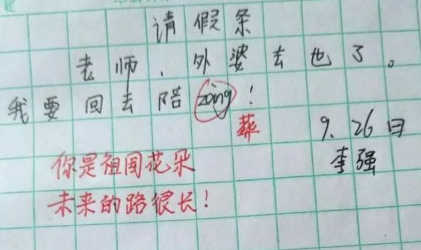 请假条
老师，外婆去也了。
我要回去陪zàng！
葬
9.26日
李强
你是祖国花朵
未来的路很长！